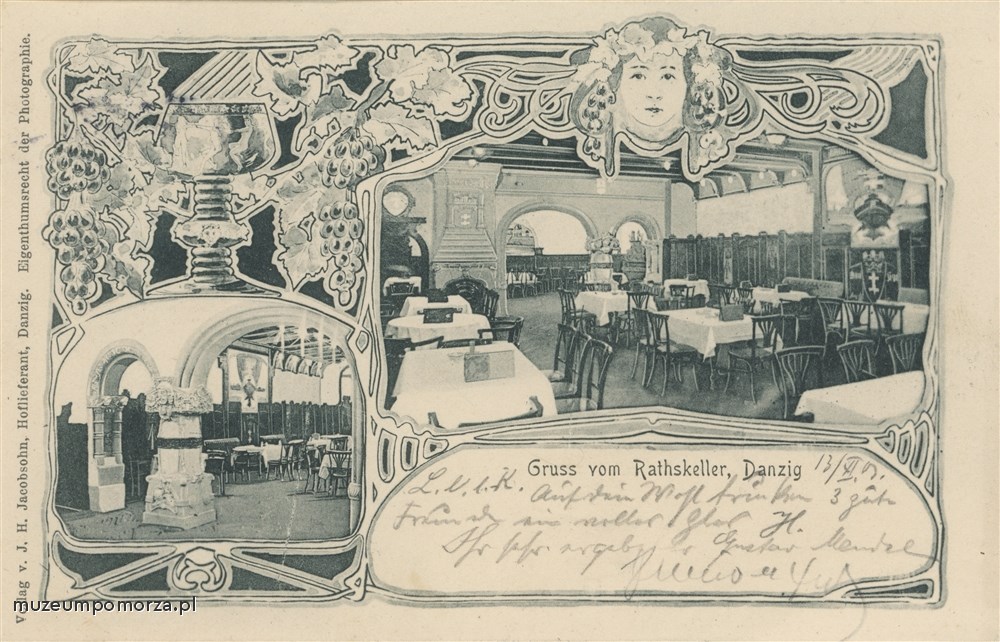 Verlag v. J. H. Jacobsohn, Hoflieferant, Danzig. Eigenthumsrecht der Photographie.
Gruss vom Rathskeller, Danzig
Auf dein Wohl trinken 3 gute
Freunde ein volles Glas
Ihr sehr Gustav Mendel
muzeumpomorza.pl